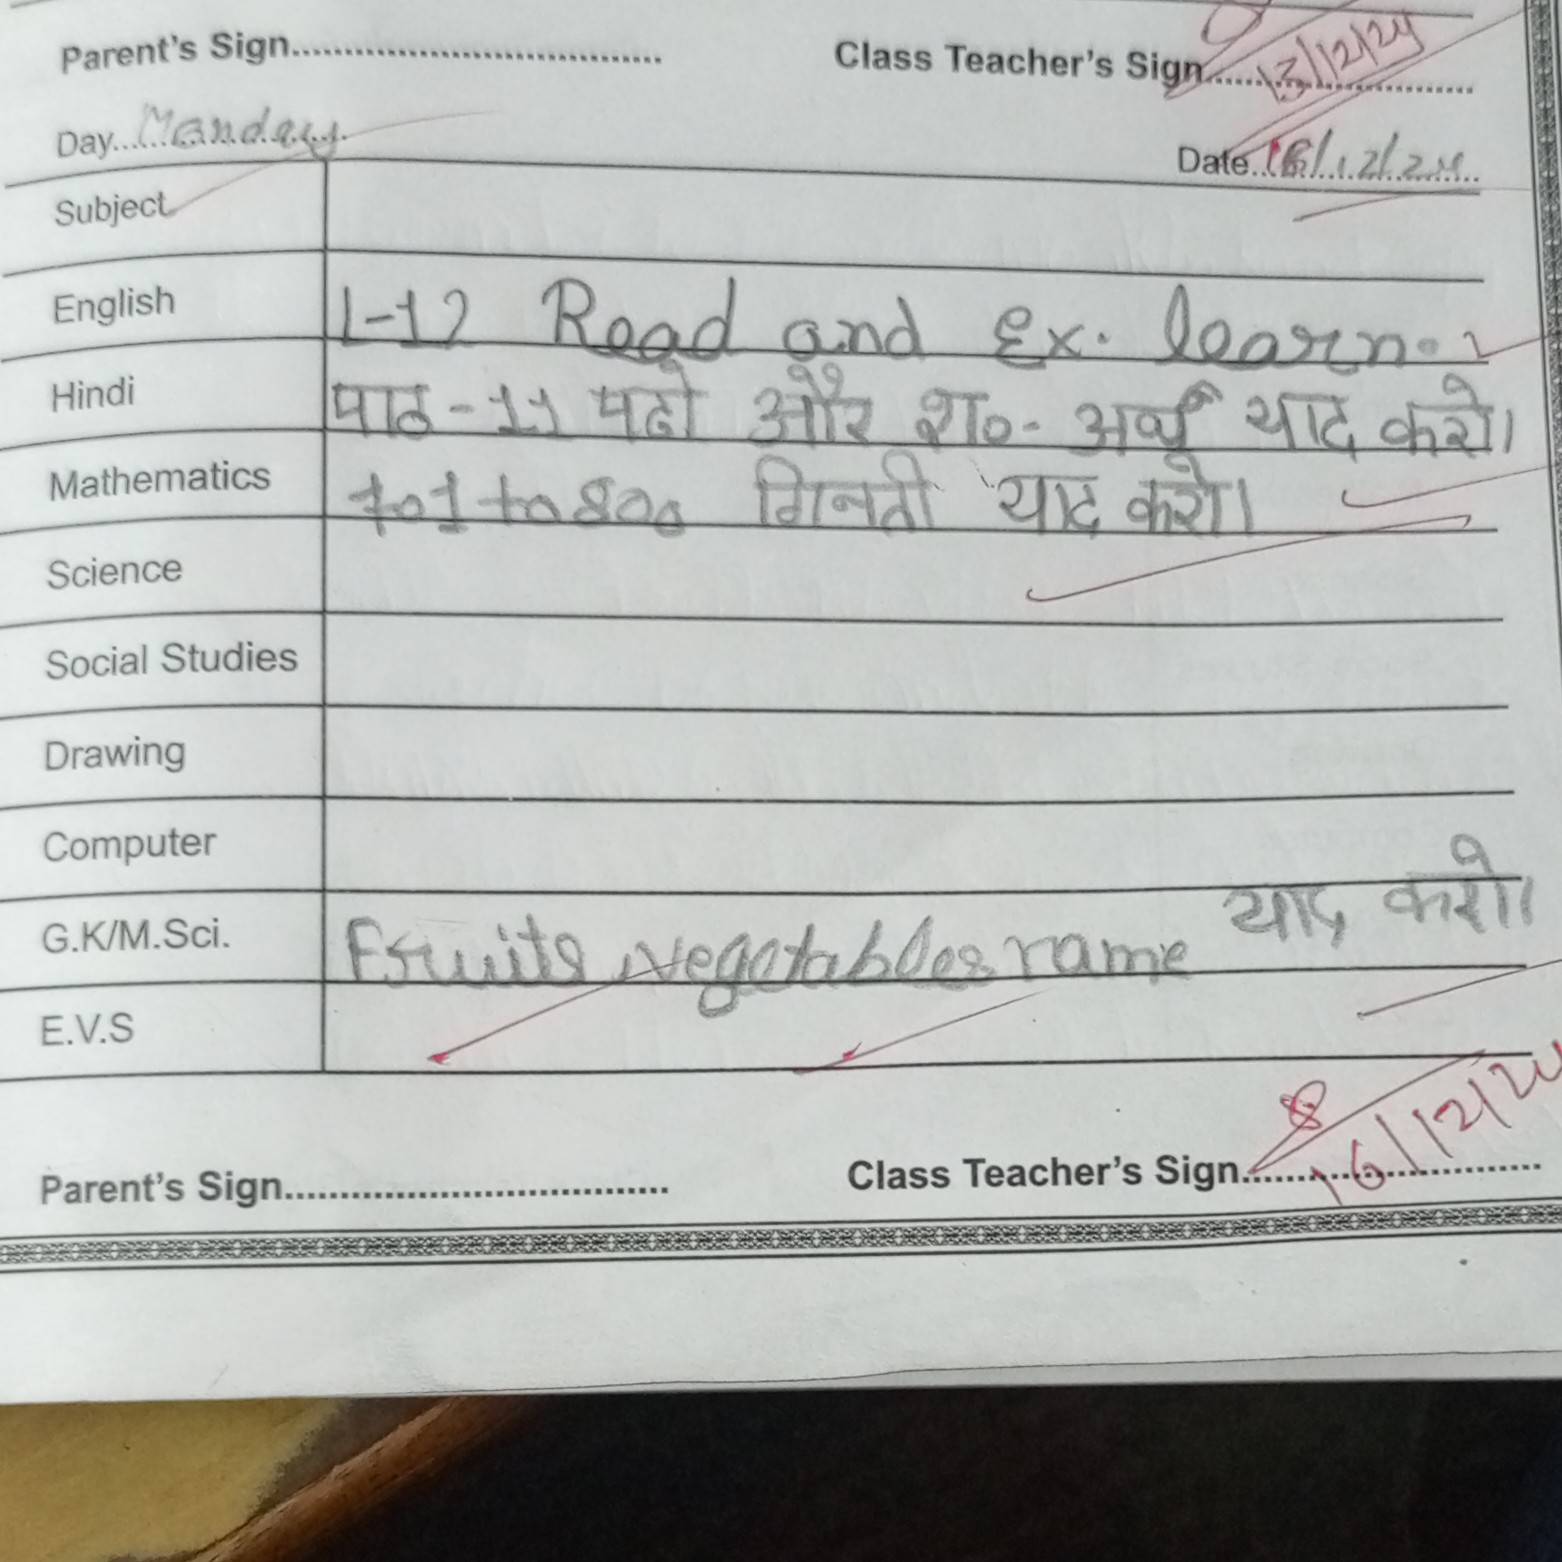 Parent's Sign.................................... Class Teacher's Sign............................ 13/12/24
Day...Manday Date 16/12/24
Subject
English L-12 Read and Ex. learn.
Hindi पाठ-11 पढो और श०- अर्थ याद करो।
Mathematics 101 to 800 गिनती याद करो।
Science
Social Studies
Drawing
Computer
G.K/M.Sci. Fruits, vegetables name याद करो।
E.V.S
Parent's Sign.................................... Class Teacher's Sign............................ 16/12/24